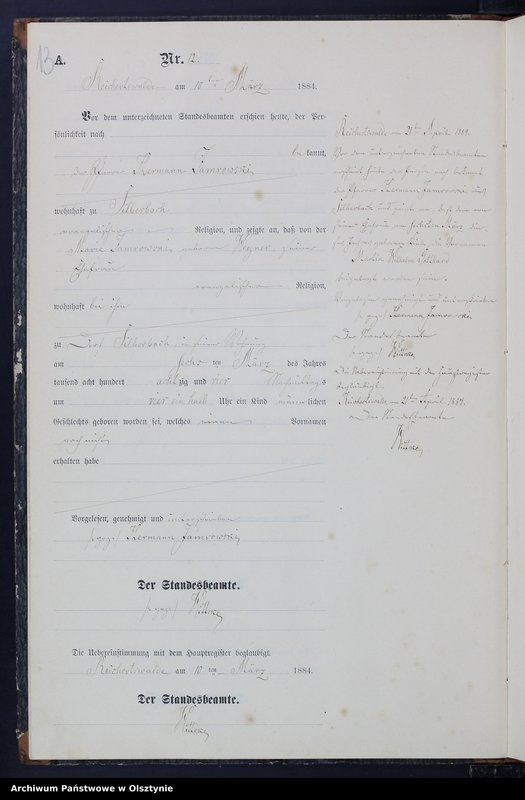 13
A.
Nr. 12.
Reichertswalde am 10ten März 1884.
Vor dem unterzeichneten Standesbeamten erschien heute, der Per-
sönlichkeit nach
be kannt,
der Pfarrer Hermann Jamrowski
wohnhaft zu Silberbach
evangelischer Religion, und zeigte an, daß von der
Marie Jamrowski, geborne Wegner, seiner
Ehefrau
evangelischer Religion,
wohnhaft bei ihm
zu Dorf Silberbach, in seiner Wohnung
am sechs ten März des Jahres
tausend acht hundert achtzig und vier Nachmittags
um vier ein halb Uhr ein Kind männlichen
Geschlechts geboren worden sei, welches einen Vornamen
noch nicht
erhalten habe
Vorgelesen, genehmigt und unterschrieben
(gez.) Hermann Jamrowski
Der Standesbeamte.
(gez.)
Die Uebereinstimmung mit dem Hauptregister beglaubigt.
Reichertswalde am 10 ten März 1884.
Der Standesbeamte.
Reichertswalde am 21ten April 1884.
Vor dem unterzeichneten Standesbeamten
erschien heute der Person nach bekannt
der Pfarrer Hermann Jamrowski aus
Silberbach und zeigte an, daß dem von
seiner Ehefrau am sechsten März die-
ses Jahres gebornen Kinde die Vornamen
Martin Wilhelm Gotthard
beigelegt worden seien.
Vorgelesen genehmigt und unterschrieben
(gez.) Hermann Jamrowski
Der Standesbeamte
(gez.)
Die Uebereinstimmung mit dem Hauptregister
beglaubigt
Reichertswalde, am 21ten April 1884.
Der Standesbeamte
Archiwum Państwowe w Olsztynie